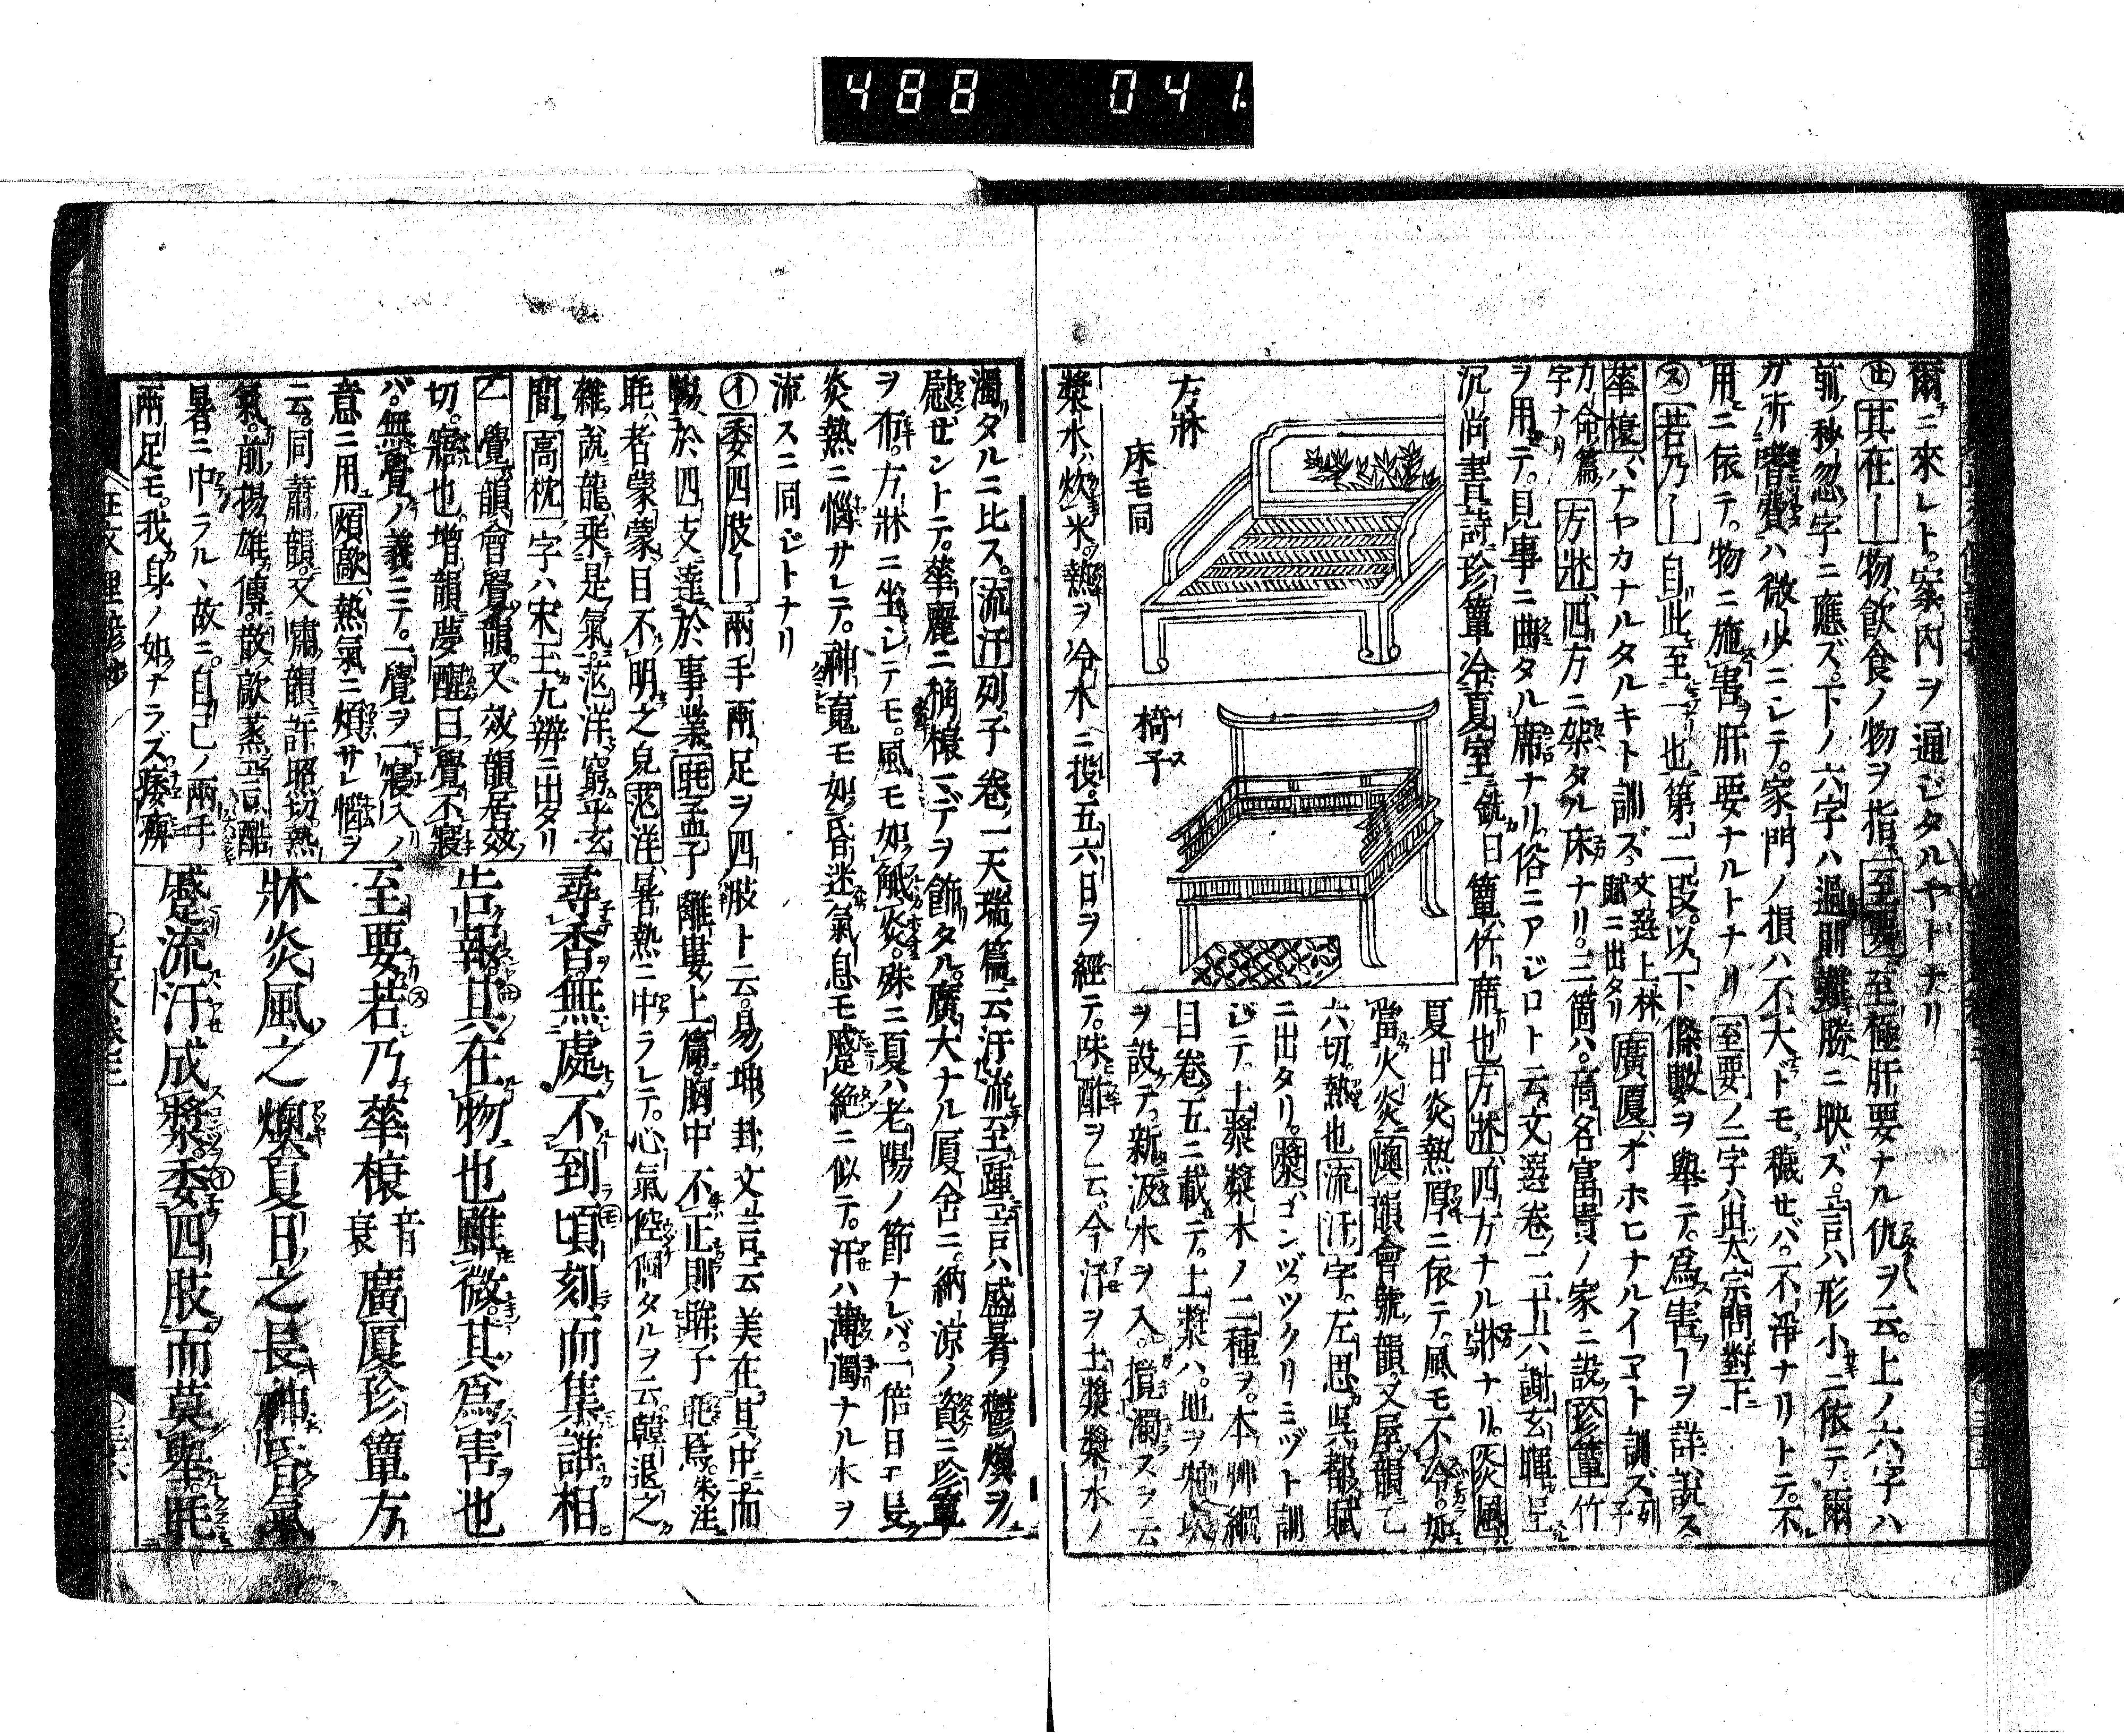 488 041.
爾ニ來レト。案内ヲ通ジタルヤトナリ
其在｜物飮食ノ物ヲ指至要至極肝要ナル仇ヲ云。上ノ六字ハ
前ノ秒忽ノ字ニ應ズ。下ノ六字ハ過則難勝ニ映ズ。言ハ形小ニ依テ爾
ガ所嗜費ハ微少ニシテ。家門ノ損ハ不大ドモ。穢セバ。不淨ナリトテ。不
用ニ依テ。物ニ施害肝要ナルトナリ至要ノ二字ハ出太宗問對下
ス若乃｜自此至一也第二段。以下條數ヲ擧テ。爲害一ヲ詳說ス
華榱ハナヤカナルタルキト訓ズ文選上林賦ニ出タリ廣厦オホヒナルイヱト訓ズ列子
力命篇字ナリ方牀四方ニ架タル床ナリ。三箇ハ。高名富貴ノ家ニ設珍簟竹
ヲ用テ。見事ニ曲タル席ナリ。俗ニアジロト云文選卷二十六謝玄暉呈
沉尚書詩珍簟冷夏室銑曰簟竹席也方牀四方ナル牀ナリ。炎風
夏日炎熱厚ニ依テ。風モ不冷。如
當火炎燠韻會號韻。又屋韻乙
六切熱也流汗字。左思吳都賦
ニ出タリ。漿コンヅツクリミヅト訓
ジテ。土漿漿水ノ二種ヲ。本艸綱
目卷五ニ載テ。土漿ハ。地ヲ掘坎
ヲ設テ。新汲水ヲ入。攪濁スヲ云
方牀
床モ同
椅子
漿水ハ炊米。熱ヲ冷水ニ投。五六日ヲ經テ。味酢ヲ云。今汗ヲ土漿漿水ノ
濁タルニ比ス。流汗列子卷一天瑞篇云汗流至踵言ハ盛暑ノ鬱燠ヲ
慰ゼントテ。華麗ニ桷榱マデヲ飾タル。廣大ナル厦舍ニ。納涼ノ資ニ珍簟
ヲ布。方牀ニ坐シテモ。風モ如觸炎。殊ニ夏ハ老陽ノ節ナレバ。一倍日モ長
炎熱ニ惱サレテ。神䰟モ如昏迷氣息モ蹙絕ニ似テ。汗ハ薄濁ナル水ヲ
流スニ同ジトナリ
イ委四肢｜兩手兩足ヲ四肢ト云。易坤卦文言云美在其中而
暢於四支達於事業眊孟子離婁上篇。胸中不正則眸子眊焉。朱注
眊者蒙蒙目不明之皃茫洋暑熱ニ中ラレテ。心氣倥侗タルヲ云韓退之
雜說龍乘是氣。茫洋窮乎玄
間高枕字ハ宋玉九辨ニ出タリ
一覺韻會覺韻又效韻居效
切。寤也。增韻夢醒曰覺不寢
バ。無覺ノ義ニテ。一覺ヲ一寢入ノ
意ニ用煩歊熱氣ニ煩サレ惱ヲ
云。同蕭韻。又嘯韻許照切熱
氣。前揚雄傳。散歊蒸言酷
暑ニ中ラル丶故ニ。自己ノ兩手
兩足モ。我身ノ如ナラズ痿痺
尋香無處不到頃刻而集誰相
告報其在物也雖微其爲害也
至要若乃華榱音衰廣厦珍簟方
牀炎風之燠夏日之長神昏氣
蹙流汗成漿委四肢而莫擧眊